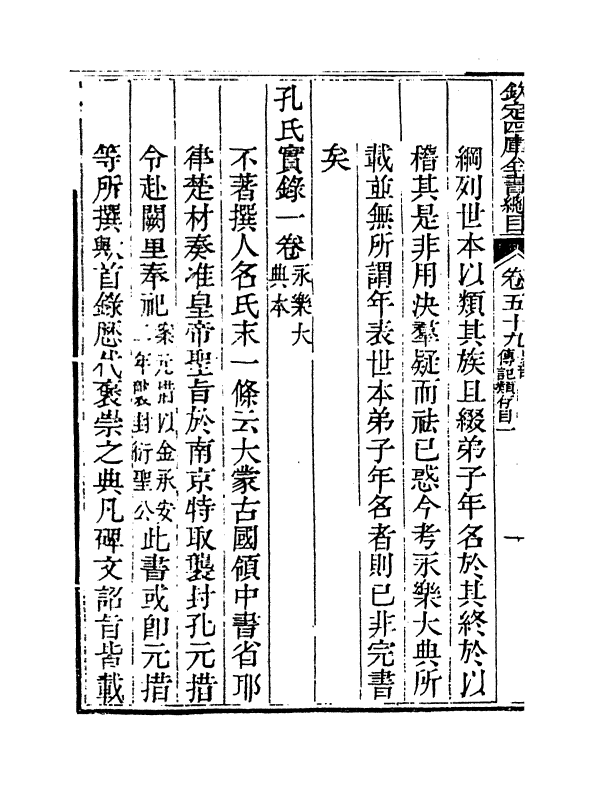 欽定四庫全書總目 卷五十九 傳記類存目一 一
綱列世本以類其族且綴弟子年名於其終於以
稽其是非用決羣疑而祛已惑今考永樂大典所
載並無所謂年表世本弟子年名者則已非完書
矣
孔氏實錄一卷 永樂大典本
不著撰人名氏末一條云大蒙古國領中書省耶
律楚材奏准皇帝聖旨於南京特取襲封孔元措
令赴闕里奉祀 案元措以金承安二年襲封衍聖公 此書或卽元措
等所撰歟首錄歷代褒崇之典凡碑文詔旨皆載